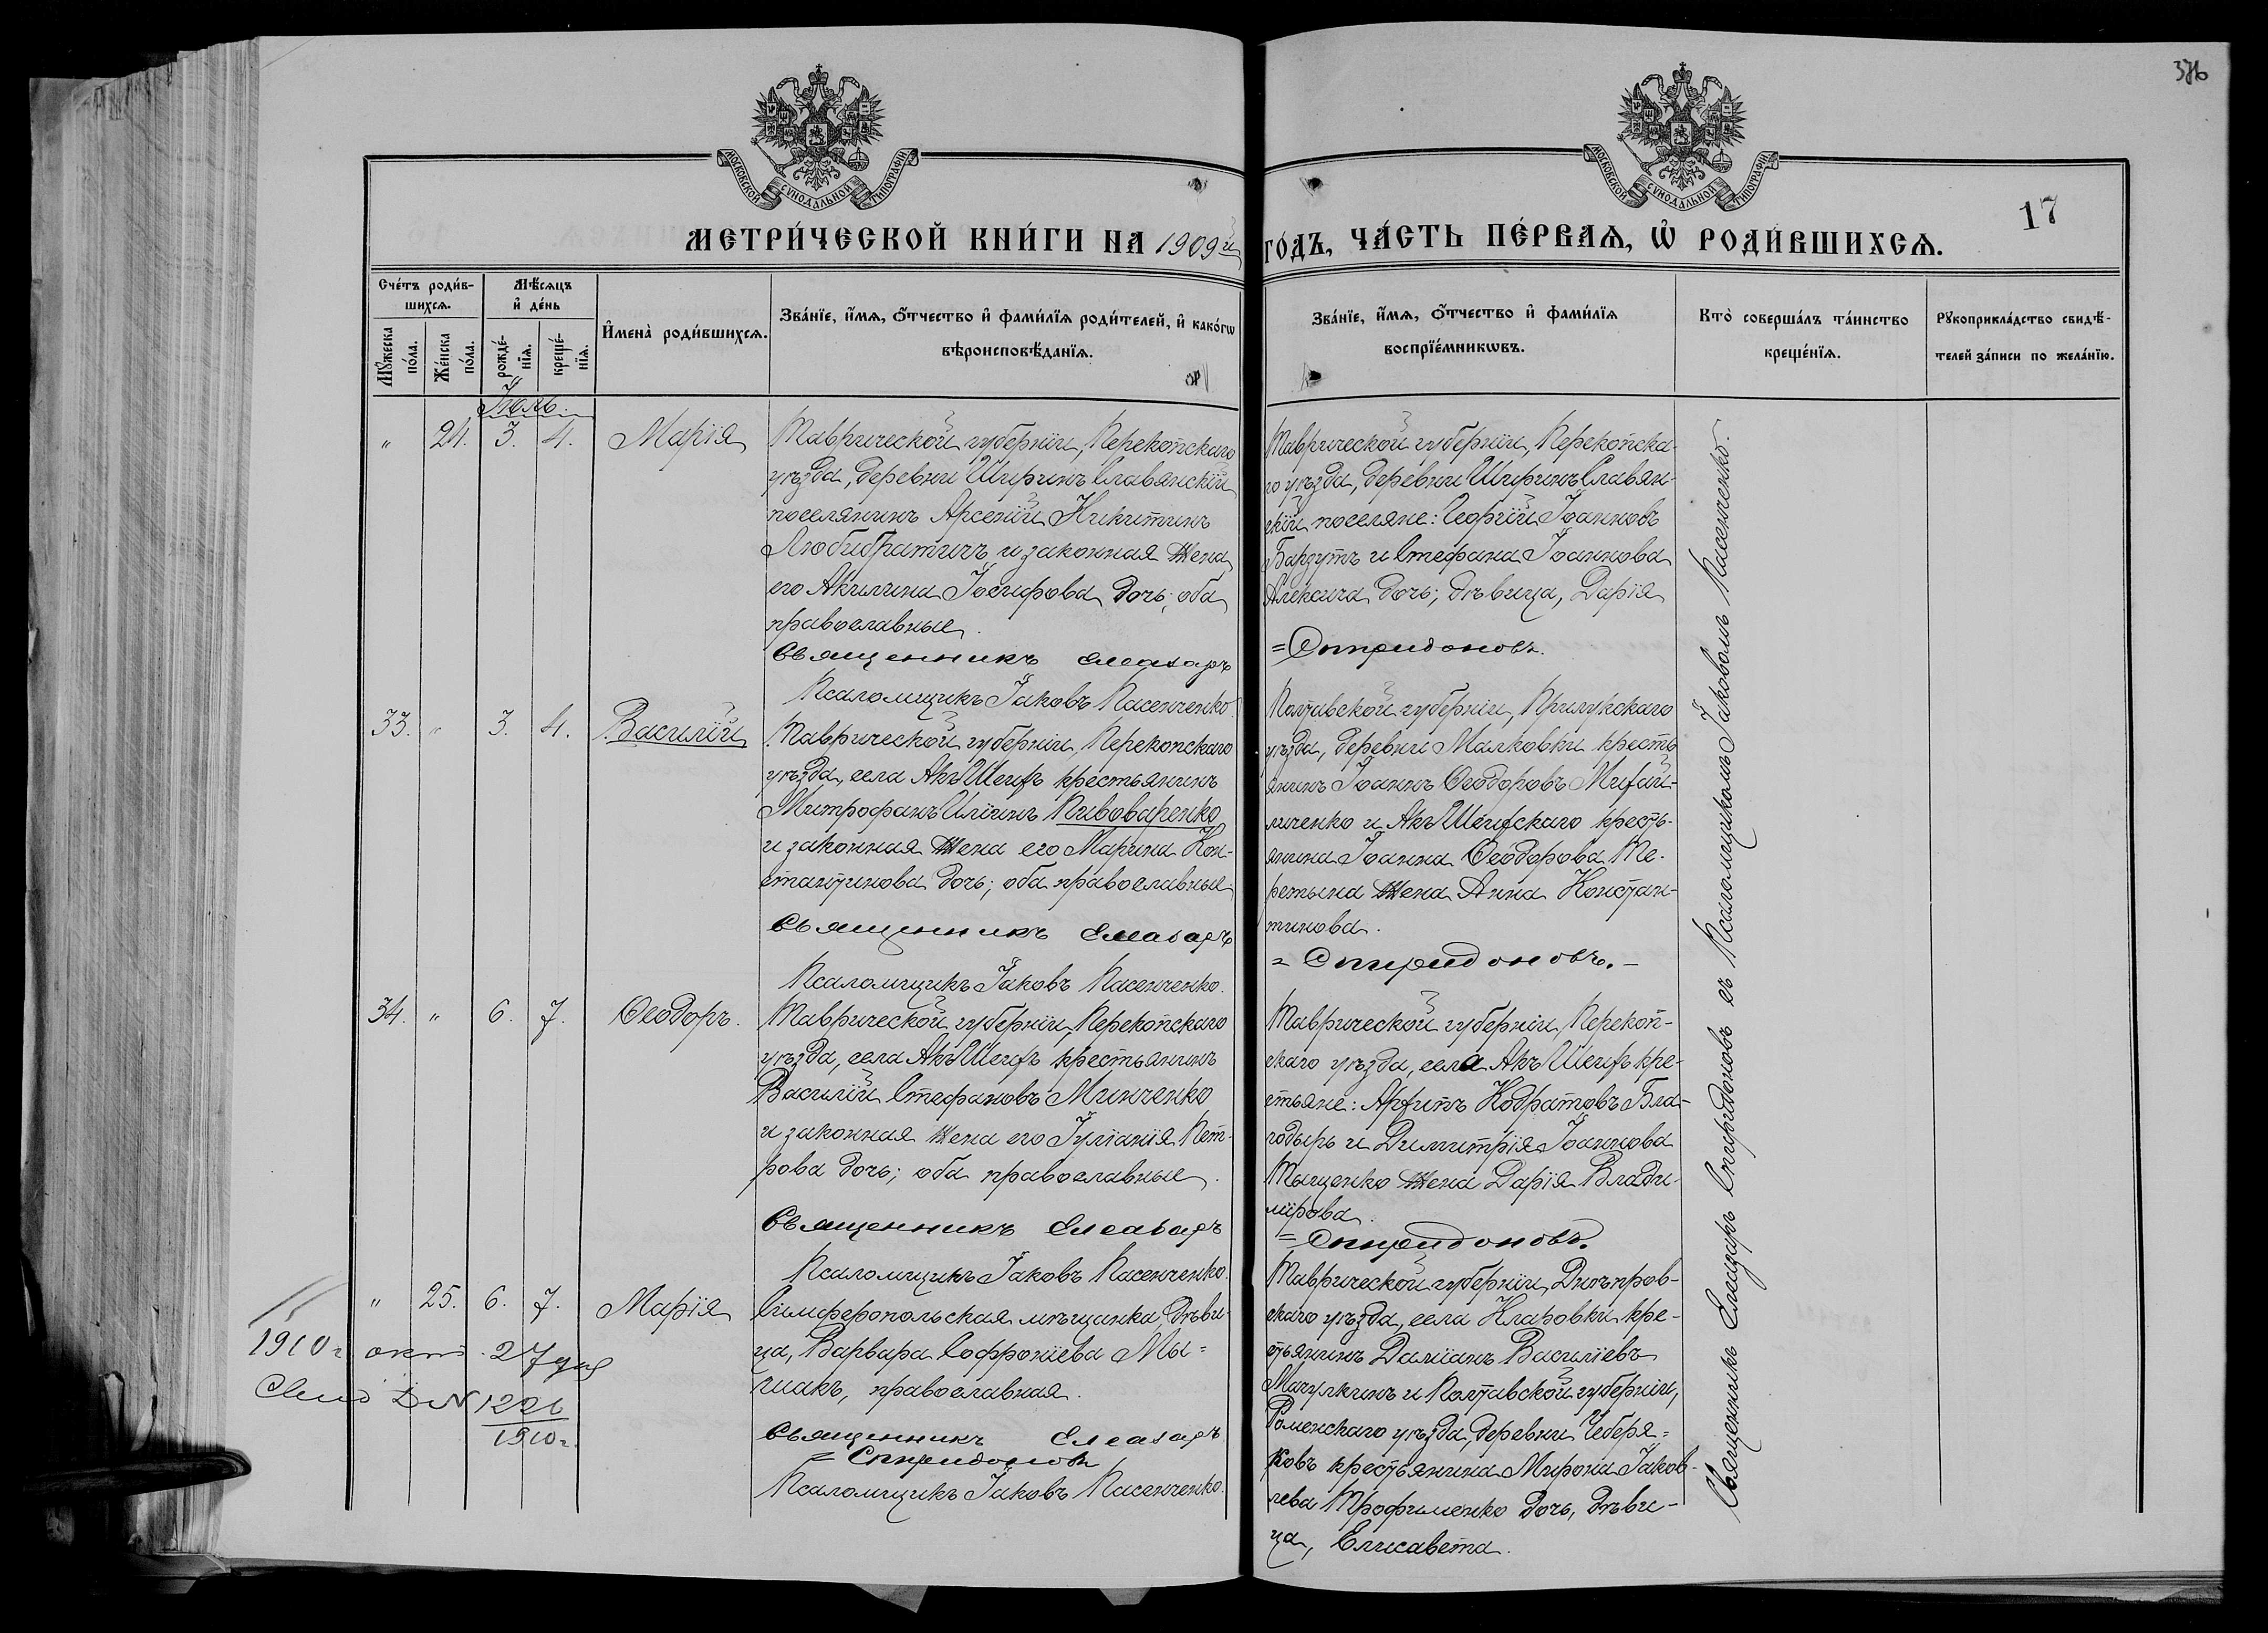 376
МОСКОВСКОЙ СѴНОДАЛЬНОЙ ТИПОГРАФІИ
МОСКОВСКОЙ СѴНОДАЛЬНОЙ ТИПОГРАФІИ
17
МЕТРИ́ЧЕСКОЙ КНИ́ГИ НА 1909й
ГО́ДЪ, ЧА́СТЬ ПЕ́РВАѦ, Ѡ҆ РОДИ́ВШИХСѦ.
Сче́тъ роди́в-
шихсѧ.
Мꙋ́жеска по́ла.
Же́нска по́ла.
Мѣ́сѧцъ
и҆ де́нь
рожде́-
нїѧ.
креще́-
нїѧ.
И҆мена̀ роди́вшихсѧ.
Зва́нїе, и҆́мѧ, ѻ҆́тчество и҆ фами́лїѧ роди́телей, и҆ како́гѡ
вѣроисповѣ́данїѧ.
Зва́нїе, и҆́мѧ, ѻ҆́тчество и҆ фами́лїѧ
воспрїе́мникѡвъ.
Кто̀ соверша́лъ та́инство
креще́нїѧ.
Рꙋкоприкла́дство свидѣ́-
телей за́писи по жела́нїю.
Іюль.
" 24. 3. 4. Марія
Таврической губерніи, Перекопскаго
уѣзда, деревни Ширинъ Славянскій
поселянинъ Арсеній Никитинъ
Любибратичъ и законная жена
его Акилина Іосифова дочь; оба
православные.
Священникъ Елеазаръ
Псаломщикъ Іаковъ Пасенченко.
Таврической губерніи, Перекопска-
го уѣзда, деревни Ширинъ Славян-
скій поселяне: Георгій Іоанновъ
Барзутъ и Стефана Іоаннова
Алексича дочь; дѣвица, Дарія
=Спиридоновъ.
33. " 3. 4. Василій
Таврической губерніи, Перекопскаго
уѣзда, села Акъ Шеихъ крестьянинъ
Митрофанъ Иліинъ Пивоваренко
и законная жена его Марина Кон-
стантинова дочь; оба православные
Священникъ Елеазаръ
Псаломщикъ Іаковъ Пасенченко.
Полтавской губерніи, Прилукскаго
уѣзда, деревни Малковки кресть
янинъ Іоаннъ Ѳеодоровъ Михай-
личенко и Акъ Шеихскаго кресть-
янина Іоанна Ѳеодорова Те-
ретына жена Анна Констан-
тинова.
= Спиридоновъ.–
34. " 6. 7. Ѳеодоръ.
Таврической губерніи, Перекопскаго
уѣзда, села Акъ Шеихъ крестьянинъ
Василій Стефановъ Минченко
и законная жена его Іуліанія Пет-
рова дочь; оба православные.
Священникъ Елеазаръ
Псаломщикъ Іаковъ Пасенченко.
Таврической губерніи, Перекоп-
скаго уѣзда, села Акъ Шеихъ кре-
стьяне: Архипъ Кодратовъ Бла-
годыръ и Димитрія Іоаннова
Тыщенко жена Дарія Влади-
мірова.
=Спиридоновъ.
" 25. 6. 7. Марія
Симферопольская мѣщанка, дѣви
ца, Варвара Софроніева Мы=
чиакъ, православная.
Священникъ Елеазаръ
= Спиридоновъ
Псаломщикъ Іаковъ Пасенченко.
Таврической губерніи, Днѣпров-
скаго уѣзда, села Кларовки кре-
стьянинъ Даміанъ Василіевъ
Мачулкинъ и Полтавской губерніи,
Роменскаго уѣзда, деревни Чеберя=
ковъ крестьянина Мирона Іаков-
лева Трофименко дочь, дѣви-
ца, Елисавета.
1910 г. окт. 27 дня
№ 1226
1910 г.
Священникъ Елеазаръ Спиридоновъ съ Псаломщикомъ Іаковомъ Пасенченко.